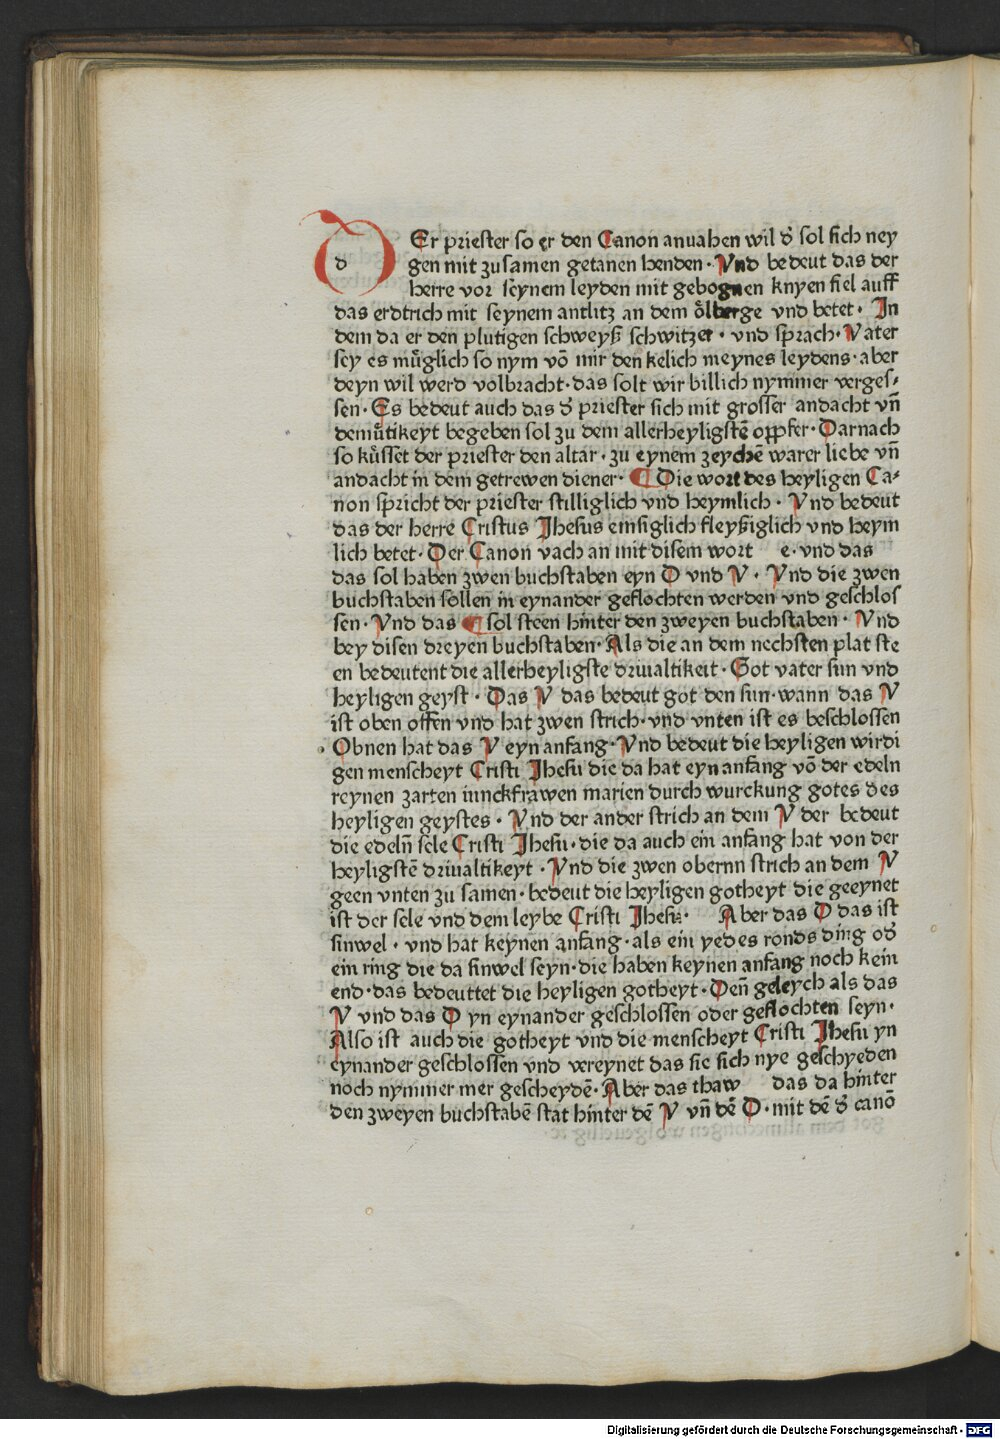 DEr priester so er den Canon anuahen wil d᷑ sol sich ney
gen mit zusamen getanen henden· Vnd bedeut das der
herre vor seynem leyden mit gebognen knyen fiel auff
das erdtrich mit seynem antlitz an dem oͤlberge vnd betet· In
dem da er den plutigen schweyß schwitzet· vnd sprach· Vater
sey es muͤglich so nym vō mir den kelich meynes leydens· aber
deyn wil werd volbracht· das solt wir billich nymmer verges⸗
sen· Es bedeut auch das d᷑ priester sich mit grosser andacht vn̄
demuͤtikeyt begeben sol zu dem allerheyligstē opffer· Darnach
so kuͤsset der priester den altar· zu eynem zeychē warer liebe vn̄
andacht in dem getrewen diener· ¶ Die wort des heyligen Ca⸗
non spricht der priester stilliglich vnd heymlich· Vnd bedeut
das der herre Cristus Jhesus einsiglich fleyßiglich vnd heym
lich betet· Der Canon vach an mit disem wort e· vnd das
das sol haben zwen buchstaben eyn D vnd V· Vnd die zwen
buchstaben sollen in eynander geflochten werden vnd geschlos
sen· Vnd das ¶ sol steen hinter den zweyen buchstaben· Vnd
bey disen dreyen buchstaben· Als die an dem nechsten plat ste
en bedeutent die allerheyligste driualtikeit· Got vater sun vnd
heyligen geyst· Das V das bedeut got den sun· wann das V
ist oben offen vnd hat zwen strich· vnd vnten ist es beschlossen
Obnen hat das V eyn anfang· Vnd bedeut die heyligen wirdi
gen menscheyt Cristi Jhesu die da hat eyn anfang vō der edeln
reynen zarten iunckfrawen marien durch wurckung gotes des
heyligen geystes· Vnd der ander strich an dem V der bedeut
die edeln̄ sele Cristi Jhesu· die da auch ein anfang hat von der
heyligstē driualtikeyt· Vnd die zwen obernn strich an dem V
geen vnten zu samen· bedeut die heyligen gotheyt die geeynet
ist der sele vnd dem leybe Cristi Jhesu· Aber das D das ist
sinwel· vnd hat keynen anfang· als ein yedes ronds ding od᷑
ein ring die da sinwel seyn· die haben keynen anfang noch kein
end· das bedeuttet die heyligen gotheyt· Den̄ geleych als das
V vnd das D yn eynander geschlossen oder geflochten seyn·
Also ist auch die gotheyt vnd die menscheyt Cristi Jhesu yn
eynander geschlossen vnd vereynet das sie sich nye geschyeden
noch nymmer mer gescheydē· Aber das thaw das da hinter
den zweyen buchstabē stat hinter dē V vn̄ dē D· mit dē d᷑ canō
Digitalisierung gefördert durch die Deutsche Forschungsgemeinschaft - DFG